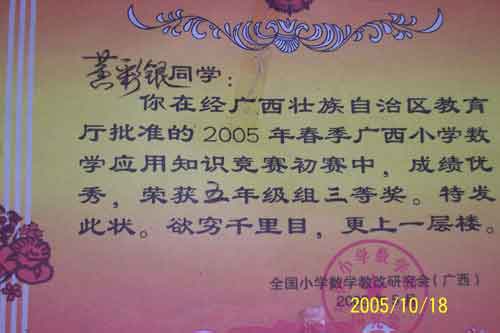 黄彩银同学：
你在经广西壮族自治区教育
厅批准的 2005 年春季广西小学数
学应用知识竞赛初赛中，成绩优
秀，荣获五年级组三等奖。特发
此状。欲穷千里目，更上一层楼。
小学数学
全国小学数学教改研究会（广西）
2005/10/18